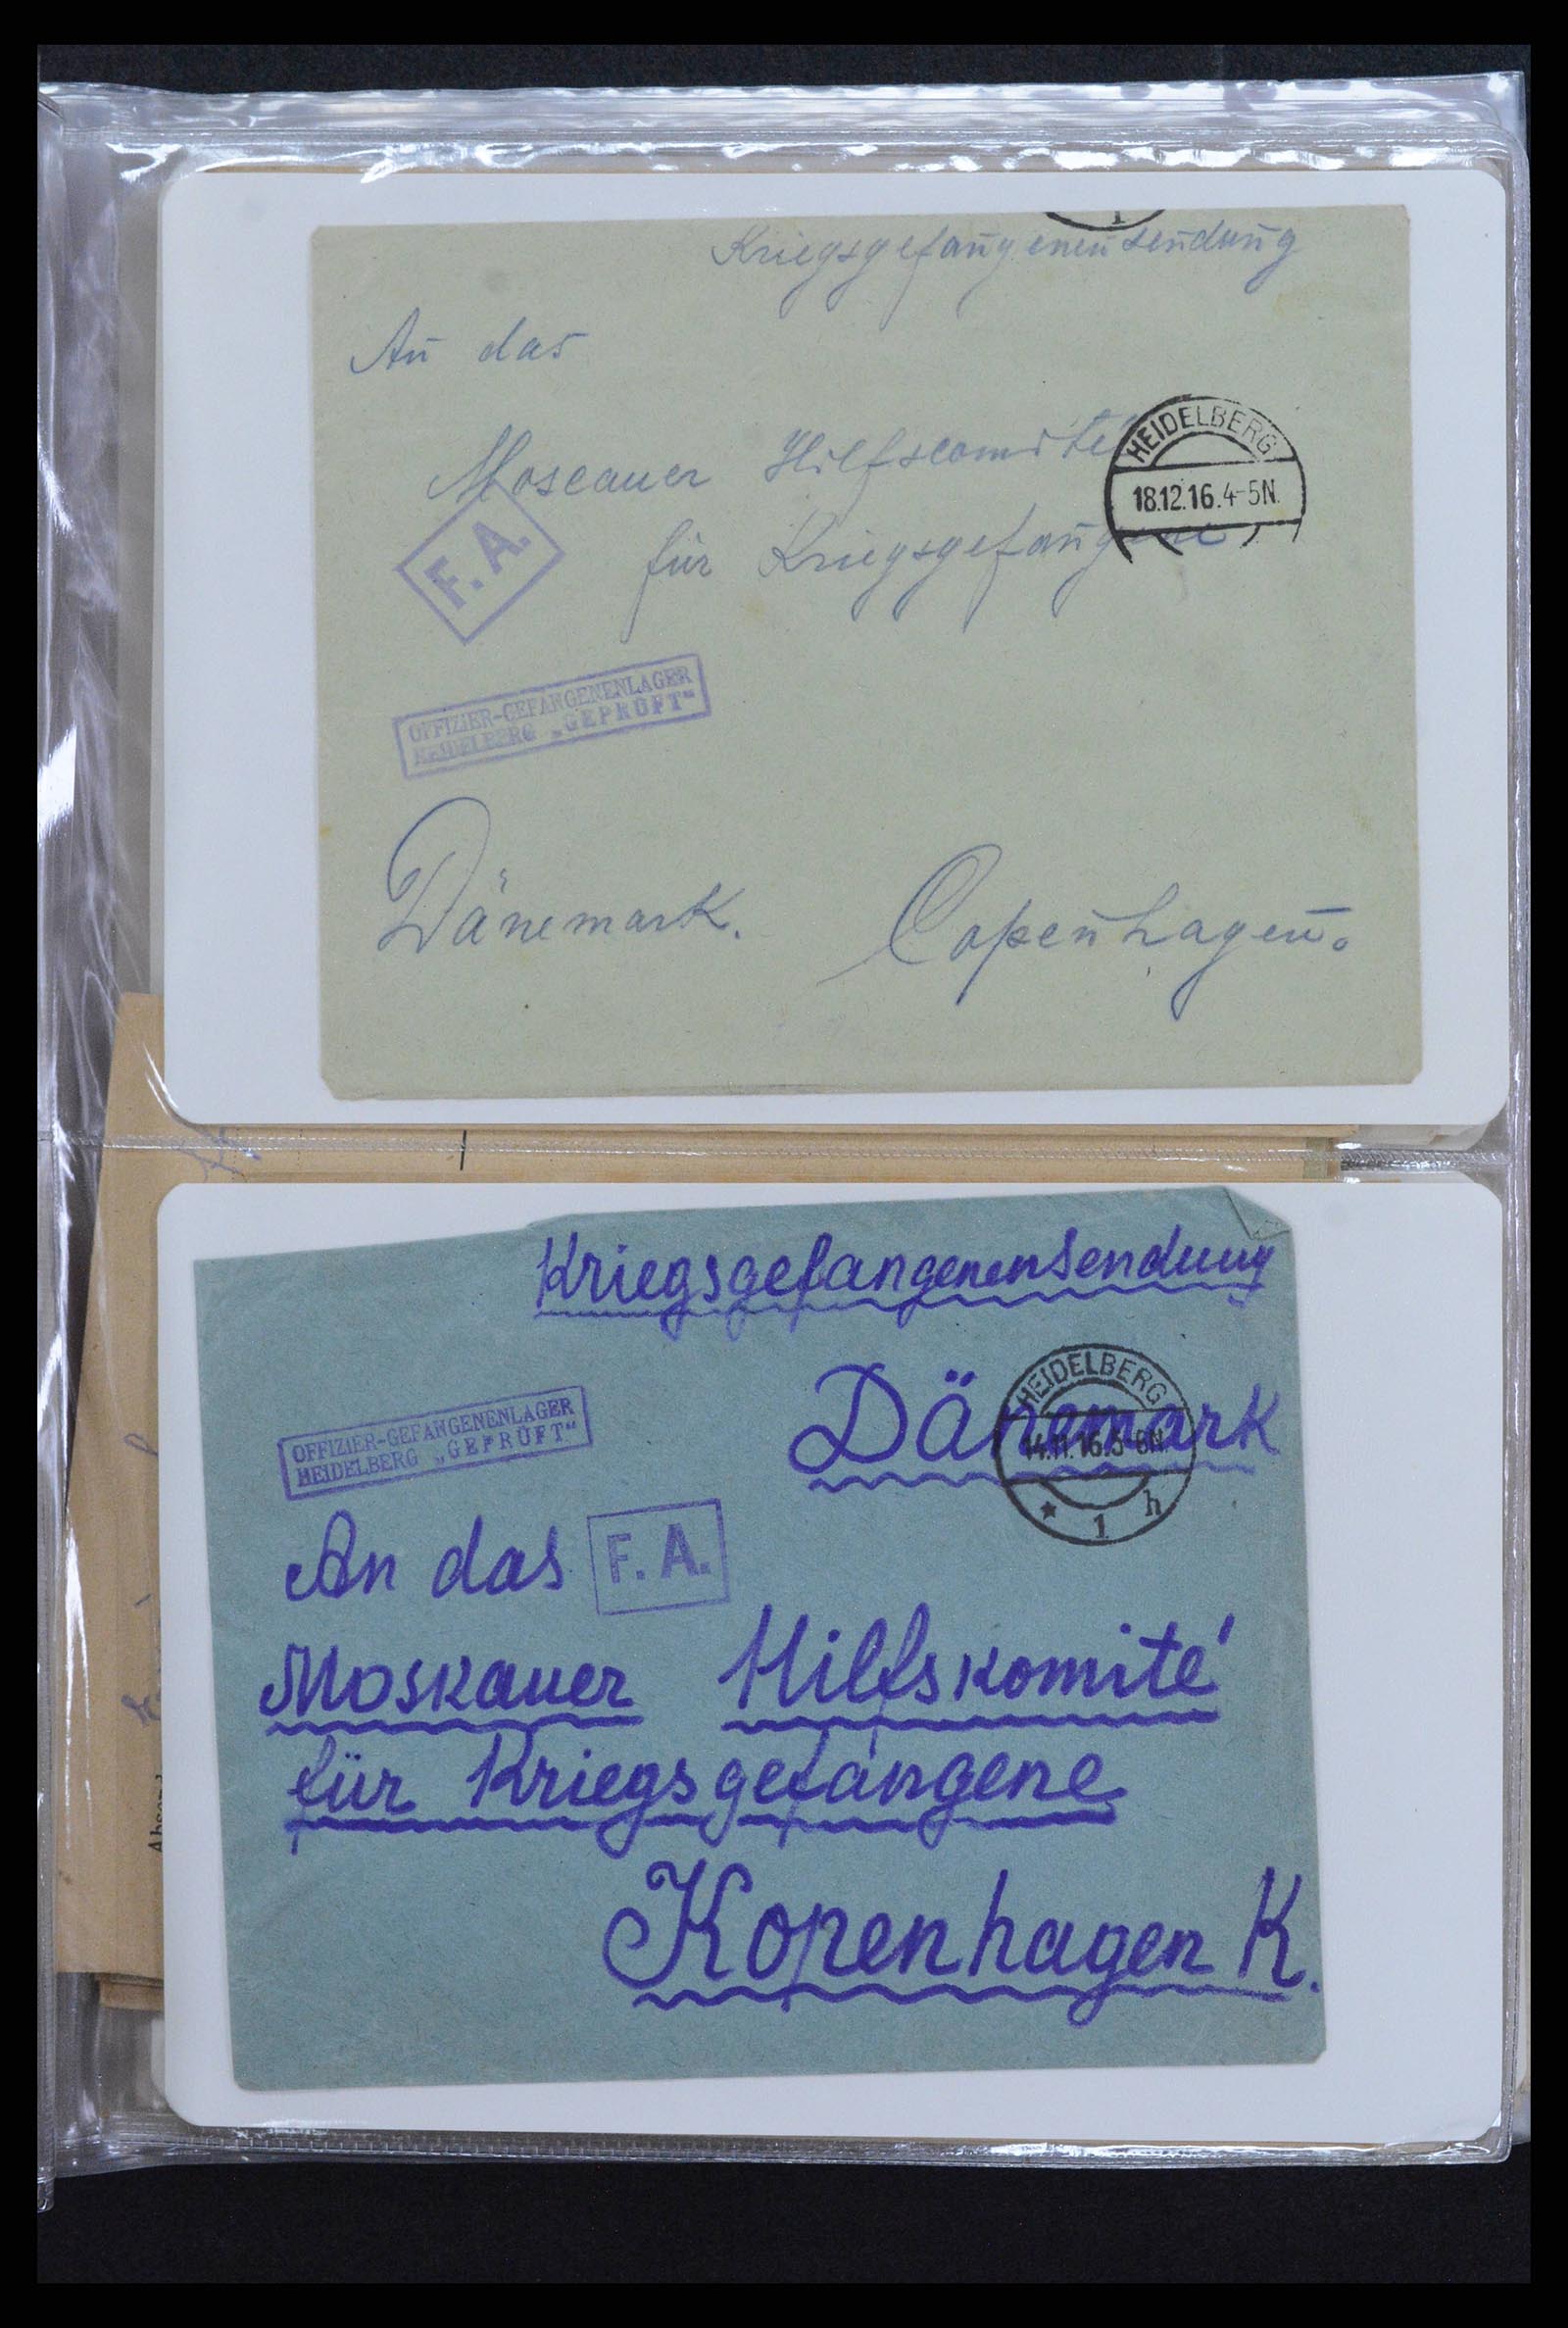 1
Kriegsgefangenensendung
An das
Moscauer Hilfscomité
HEIDELBERG
18.12.16.4-5N.
für Kriegsgefangene
F. A.
OFFIZIER-GEFANGENENLAGER
HEIDELBERG „GEPRÜFT“
Dänemark. Copenhagen.
Kriegsgefangenensendung
HEIDELBERG
14.11.16.5-6N
* 1 h
Dänemark
OFFIZIER-GEFANGENENLAGER
HEIDELBERG „GEPRÜFT“
An das
F. A.
Moskauer Hilfskomité
für Kriegsgefangene
Kopenhagen K.